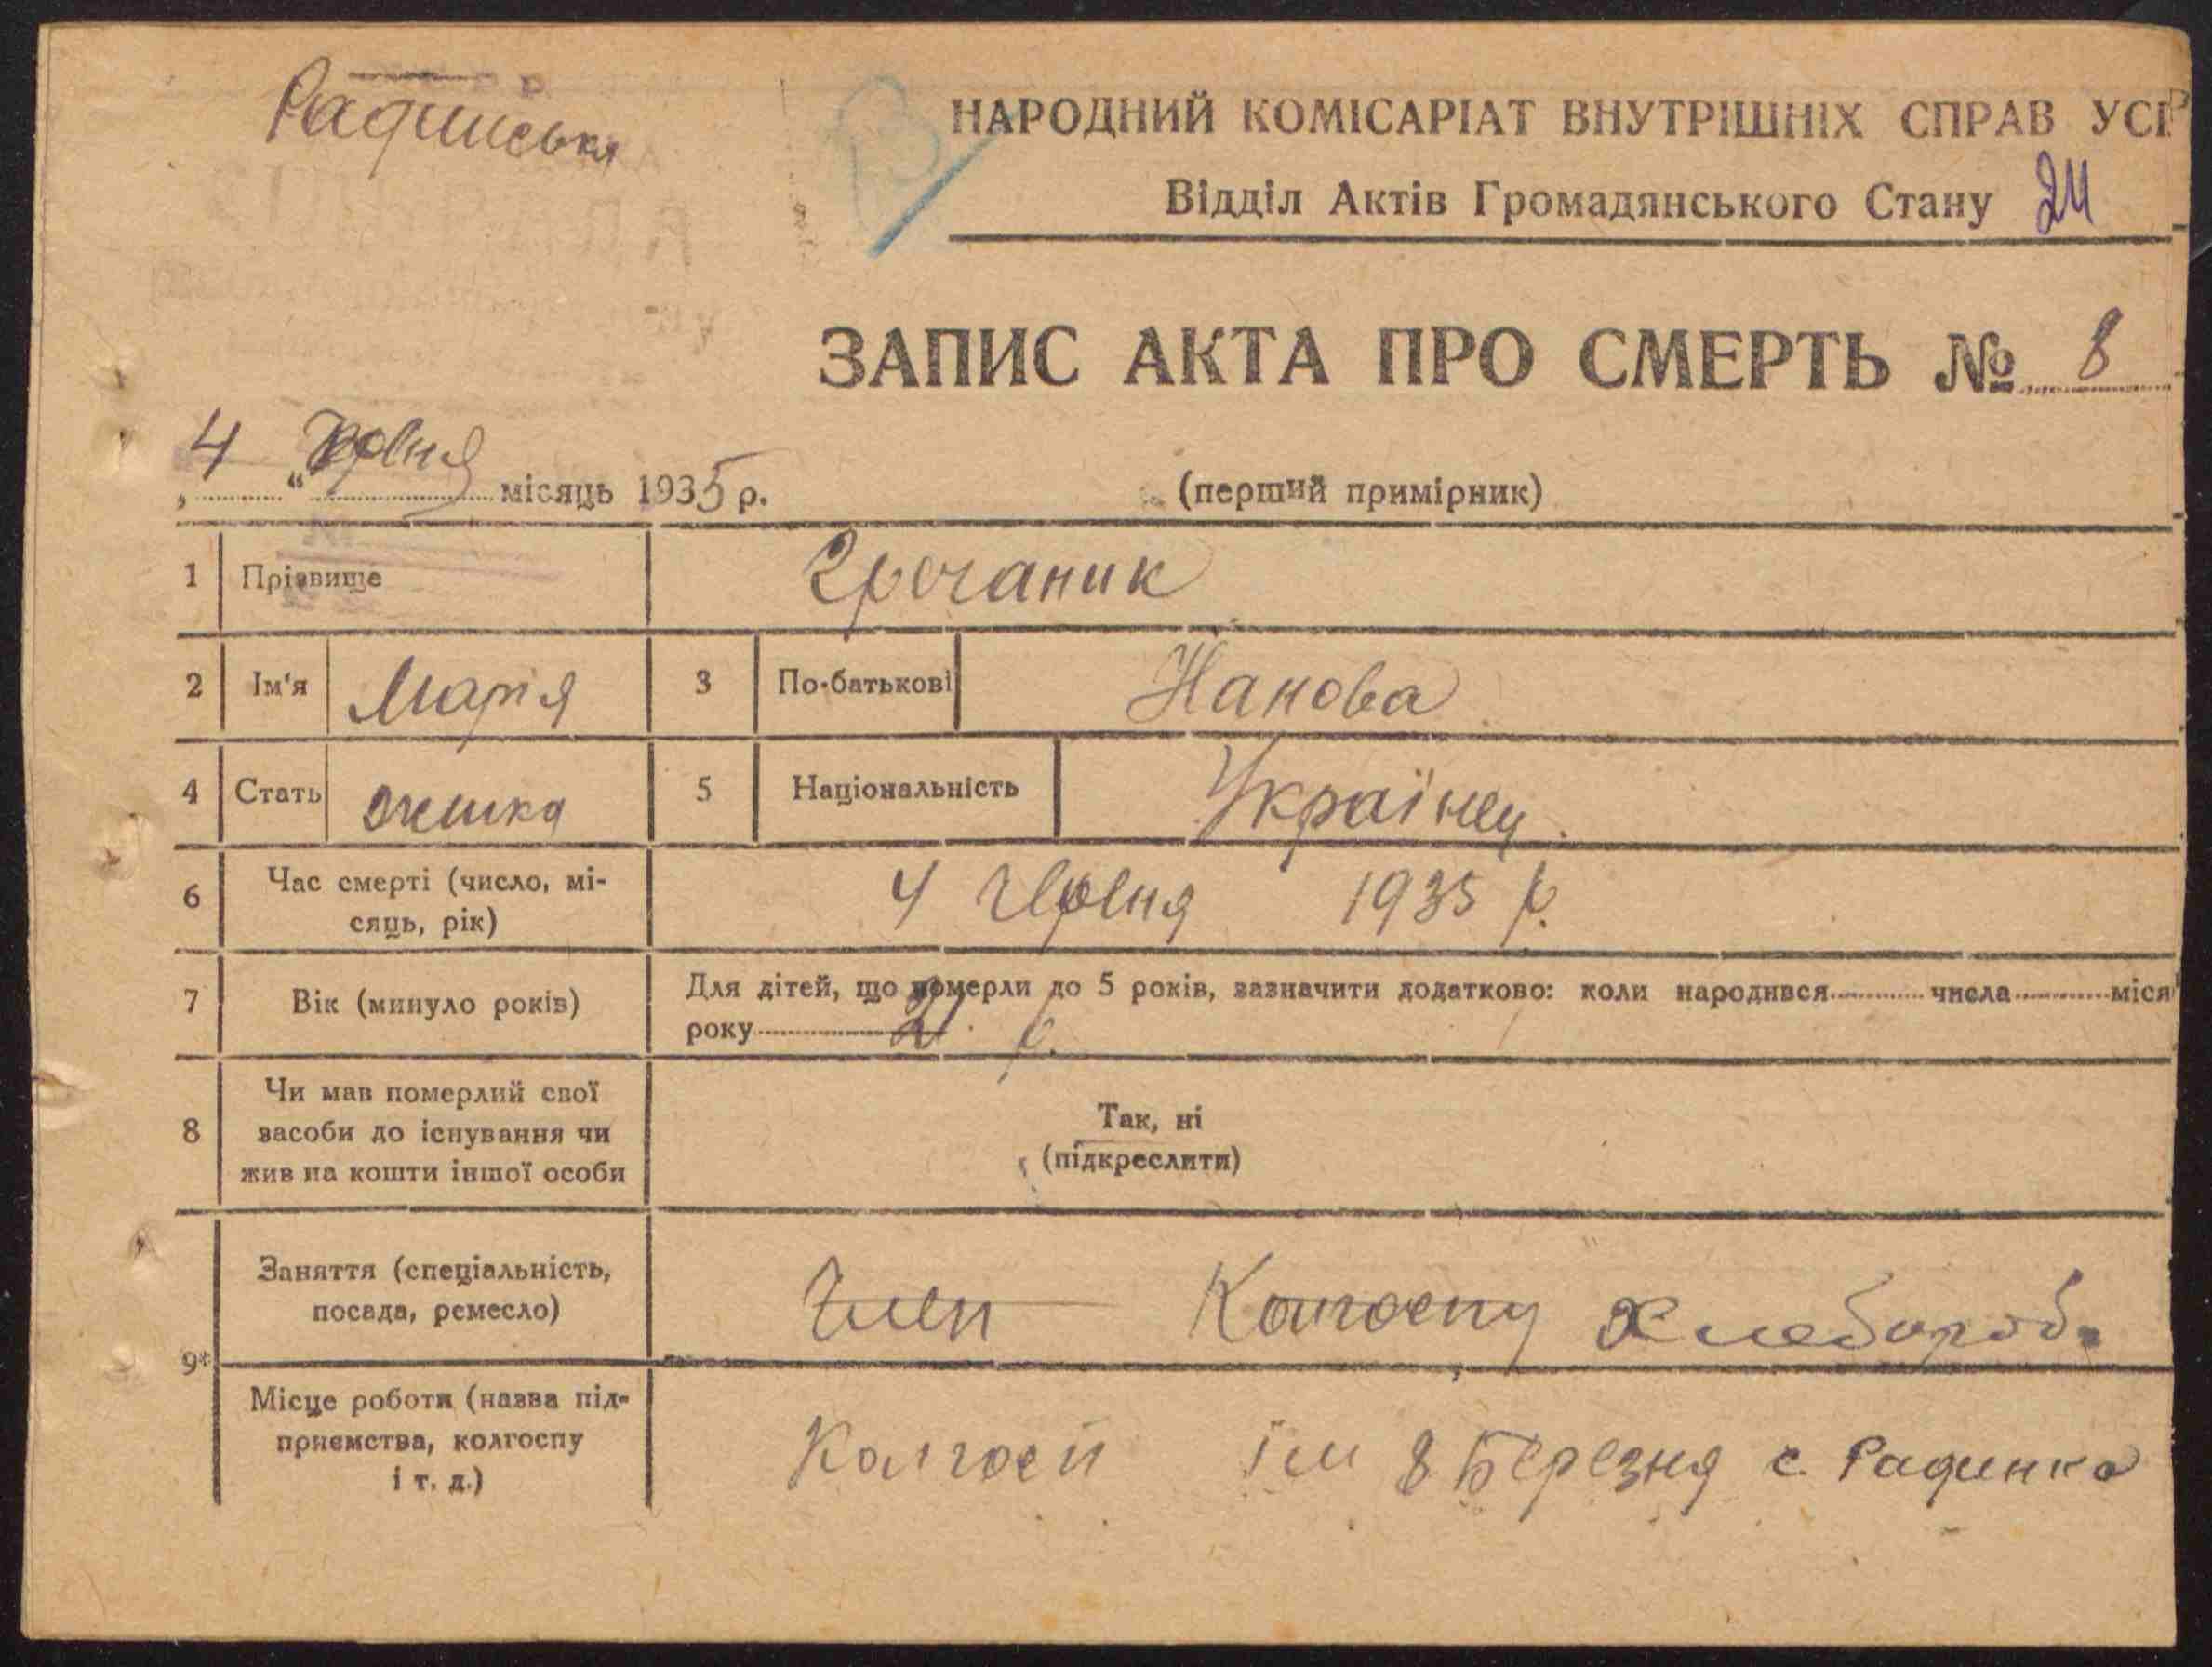 Радинська
НАРОДНИЙ КОМІСАРІАТ ВНУТРІШНІХ СПРАВ УСР
Відділ Актів Громадянського Стану 24
ЗАПИС АКТА ПРО СМЕРТЬ № 8
„ 4 “ Червня місяць 1935 р.
(перший примірник)
1 Прізвище Гречаник
2 Ім'я Марія 3 По-батькові
4 Стать жінка 5 Національність Українец.
6 Час смерті (число, мі-
сяць, рік) 4 Червня 1935 р.
7 Вік (минуло років) Для дітей, що померли до 5 років, зазначити додатково: коли народився числа міся
року 21 р.
8 Чи мав померлий свої
засоби до існування чи
жив на кошти іншої особи
Так, ні
(підкреслити)
9* Заняття (спеціальність,
посада, ремесло) Член Колгоспу Хлебороб.
Місце роботи (назва під-
приємства, колгоспу
і т. д.) Колгосп ім 8 Березня с. Радинка